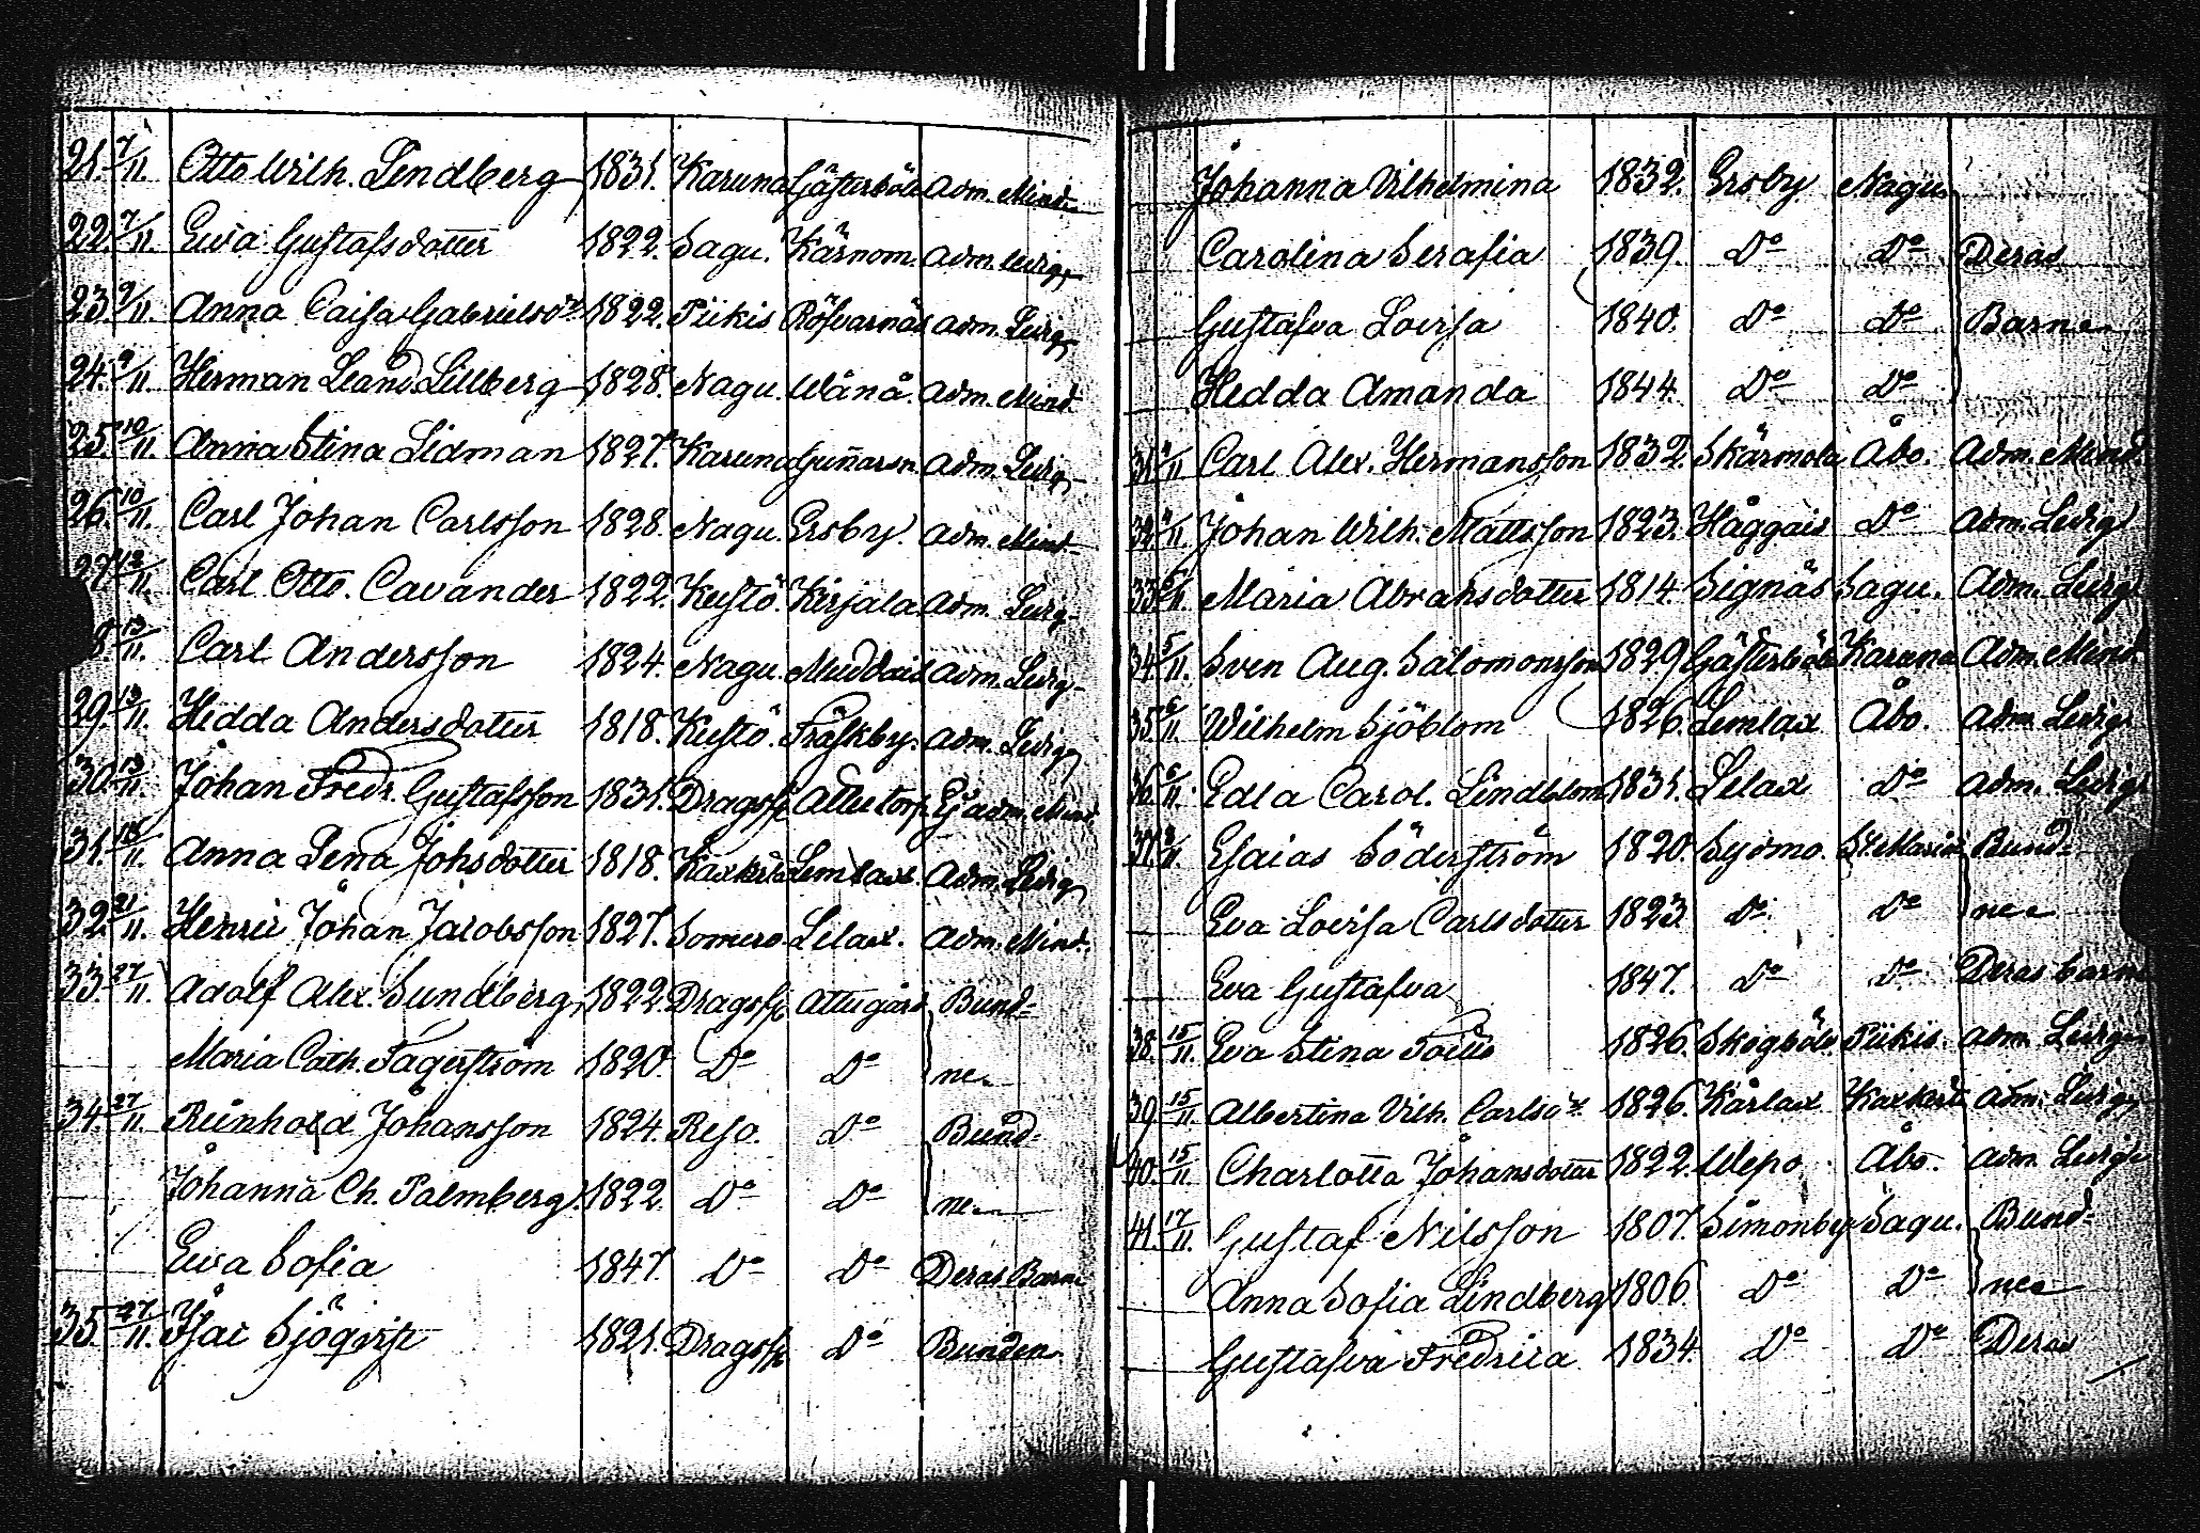 21. 7/11. Otto Wilh. Lindberg 1831. Karuna Gästerböle Adm. Mind.
22. 7/11. Ewa Gustafsdotter 1822. Sagu. Kärnom. Adm. ledig
23. 9/11. Anna Caisa Gabrielsd:r 1822. Piikis Röfvarnäs Adm. Ledig
24. 9/11. Herman Leand. Lillberg 1828. Nagu. Wånå. Adm. Mind.
25. 10/11. Anna Stina Lidman 1827. Karuna Gunnarsn. Adm. Ledig
26. 10/11. Carl Johan Carlsson 1828. Nagu. Ersby. Adm. Mind.
27. 13/11. Carl Otto. Cavander 1822. Kustö. Kirjala Adm. Ledig
8. 13/11. Carl Andersson 1824. Nagu. Muddais Adm. Ledig
29. 13/11. Hedda Andersdotter 1818. Kustö. Träskby. Adm. Ledig
30. 13/11. Johan Fredr. Gustafsson 1831. Dragsfj. Attu torp. Ej adm. Mind.
31. 18/11. Anna Lena Johsdotter 1818. Kaxkerta Lemlax. Adm. Ledig
32. 21/11. Henric Johan Jacobsson 1827. Somero. Lilax. Adm. Mind.
33. 27/11. Adolf Alex. Sundberg 1822. Dragsfj. Attu gård Bund.
Maria Cath. Fagerström 1820. D:o D:o ne
34. 27/11. Reinhold Johansson 1824. Reso. D:o Bund.
Johanna Ch. Palmberg. 1822. D:o D:o ne
Ewa Sofia 1847. D:o D:o Deras Barn
35. 27/11. Isac Sjöqvist 1821. Dragsfj. D:o Bunden
Johanna Vilhelmina 1832. Ersby. Nagu.
Carolina Serafia 1839. D:o D:o Deras
Gustafva Lovisa 1840. D:o D:o Barn
Hedda Amanda 1844. D:o D:o
31. /11 Carl Alex. Hermansson 1832. Skärmola Åbo. Adm. Mind.
32. /11. Johan Wilh. Mattsson 1823. Håggais D:o Adm. Ledig
33. /11. Maria Abrahsdotter 1814. Signäs Sagu. Adm. Ledig
34. 5/11. Sven Aug. Salomonsson 1829. Gästerböle Karuna Adm. Mind.
35. 6/11. Wilhelm Sjöblom 1826. Lemlax Åbo. Adm. Ledig
36. 6/11. Edla Carol. Lindblom 1831. Lilax D:o Adm. Ledig
37. /11. Esaias Söderström 1820. Sydmo. St. Mariæ Bund.
Eva Lovisa Carlsdotter 1823. D:o D:o ne
Eva Gustafva 1847. D:o D:o Deras barn
38. 15/11. Eva Stina 1826. Skogböle. Piikis. Adm. Ledig
39. 15/11. Albertina Vilh. Carlsd:r 1826. Kärlax Kaxkerta Adm. Ledig
40. 15/11. Charlotta Johansdotter 1822. Ulepo Åbo. Adm. Ledig
41. 17/11. Gustaf Nilsson 1807. Simonby Sagu. Bund.
Anna Sofia Lindberg 1806. D:o D:o ne
Gustafva Fredrica 1834. D:o D:o Deras